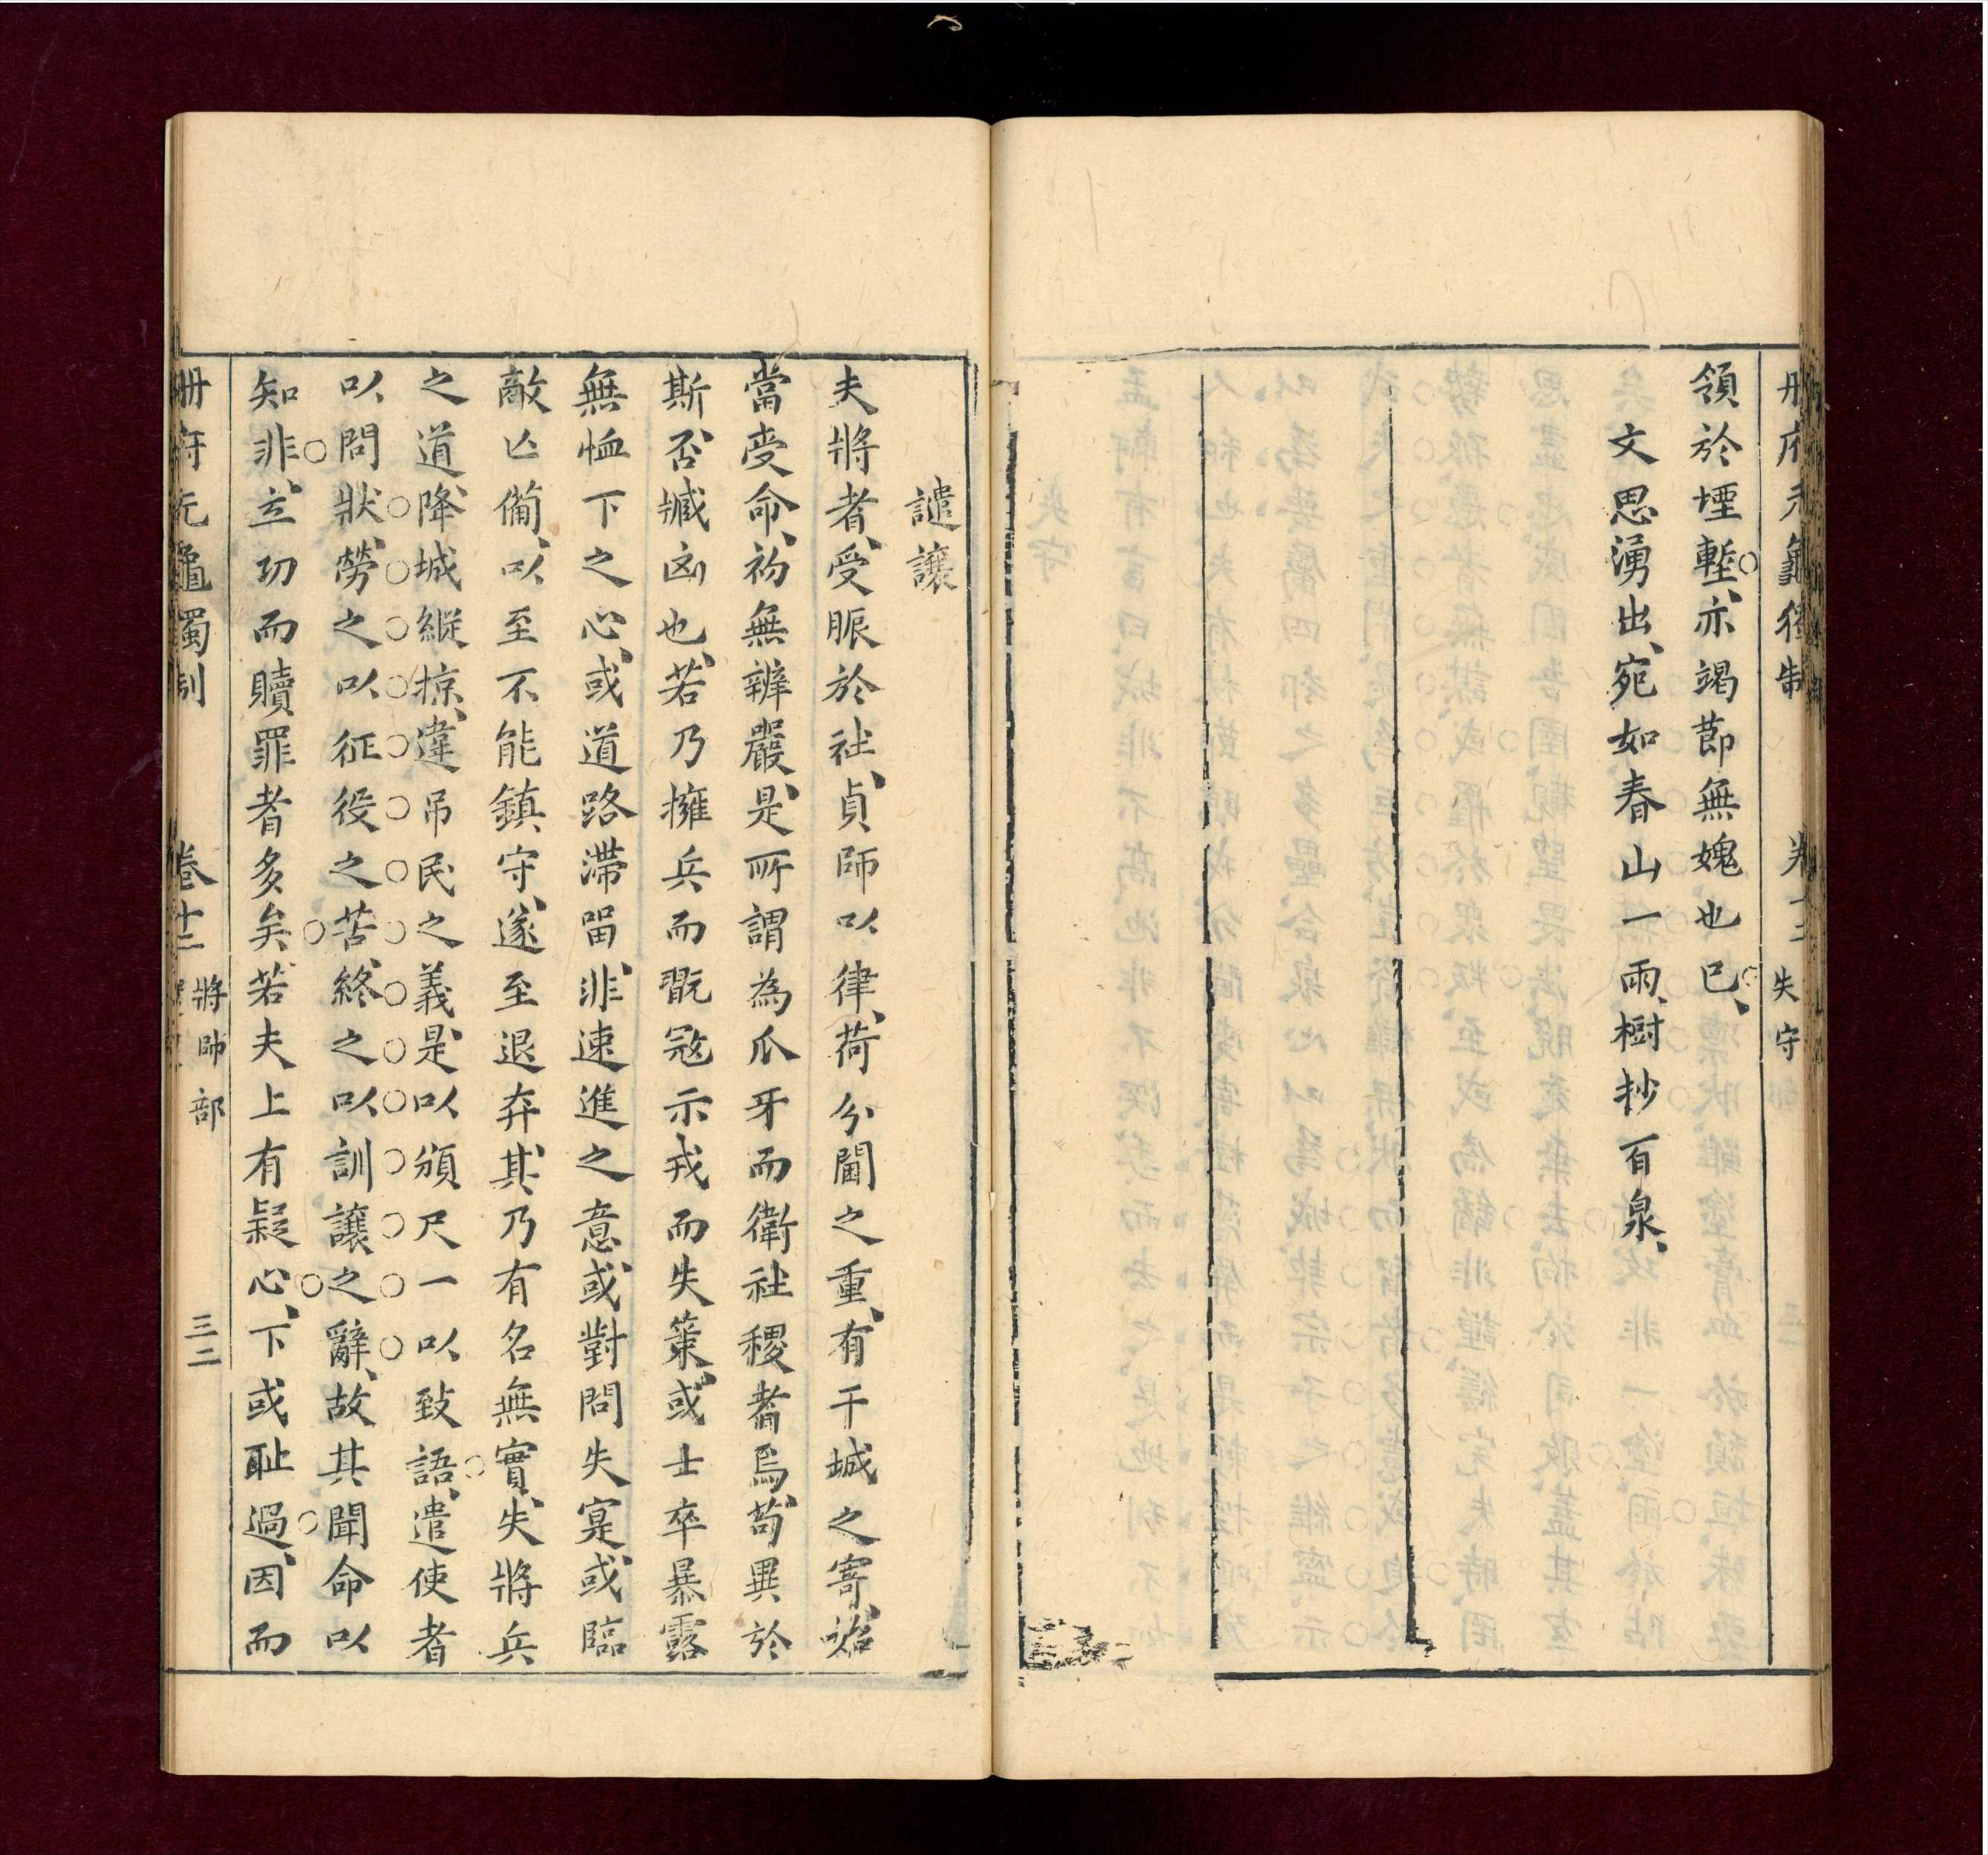 領於堙塹亦竭莭無媿也已
文思湧出宛如春山一雨樹抄百泉
失守
譴讓
夫將者受脤於社貞師以律荷分閫之重有干城之寄
當受命初無辦嚴是所謂為爪牙而衛社稷者焉苟異於
斯否臧凶也若乃擁兵而翫冦示戎而失策或士卒暴露
無恤下之心或道路滯畱非速進之意或對問失寔或臨
敵亡備以至不能鎮守遂至退弃其乃有名無實失將兵
之道降城縱掠違吊民之義是以頒尺一以致語遣使者
以問狀勞之以征役之苦終之以訓讓之辭故其聞命以
知非立功而贖罪者多矣若夫上有疑心下或耻過因而
冊府元龜獨制
卷十二
將帥部
三二